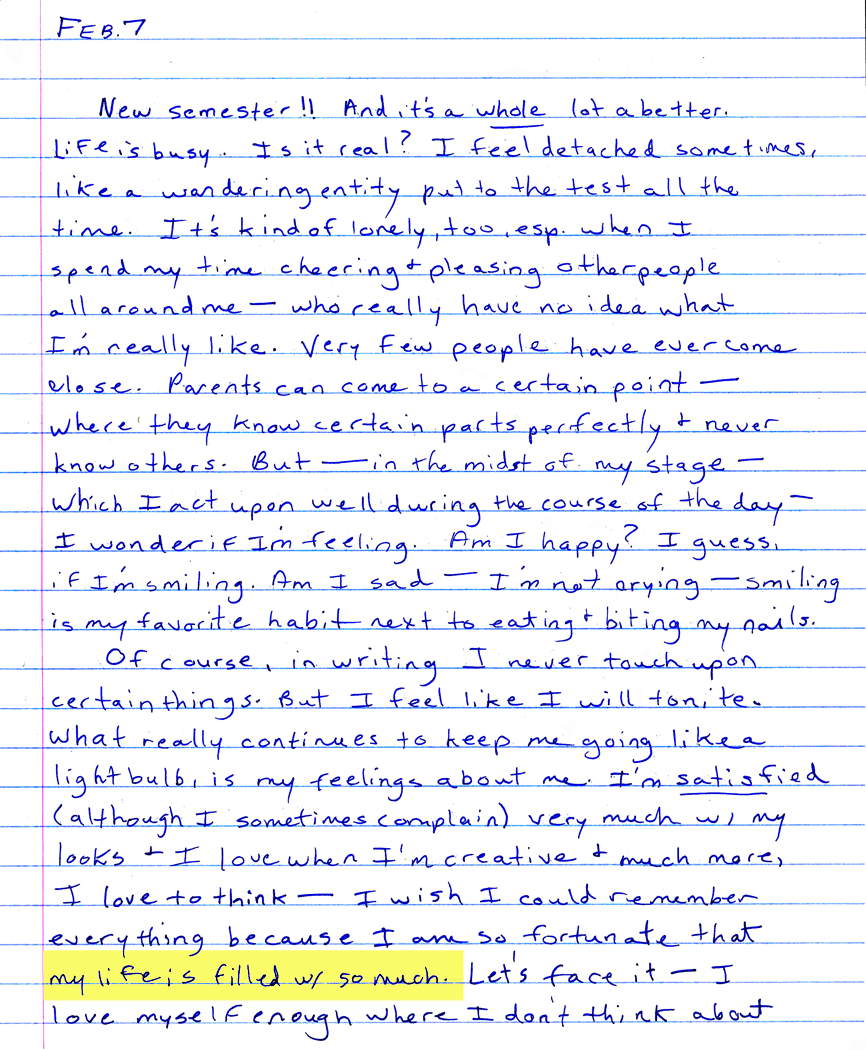 FEB. 7
New semester!! And it's a whole lot a better.
Life is busy. Is it real? I feel detached sometimes,
like a wandering entity put to the test all the
time. It's kind of lonely, too, esp. when I
spend my time cheering + pleasing other people
all around me — who really have no idea what
I'm really like. Very few people have ever come
close. Parents can come to a certain point —
where they know certain parts perfectly + never
know others. But — in the midst of my stage —
which I act upon well during the course of the day —
I wonder if I'm feeling. Am I happy? I guess,
if I'm smiling. Am I sad — I'm not crying — smiling
is my favorite habit next to eating + biting my nails.
Of course, in writing I never touch upon
certain things. But I feel like I will tonite.
What really continues to keep me going like a
light bulb, is my feelings about me. I'm satisfied
(although I sometimes complain) very much w/ my
looks + I love when I'm creative + much more,
I love to think — I wish I could remember
everything because I am so fortunate that
my life is filled w/ so much. Let's face it — I
love myself enough where I don't think about